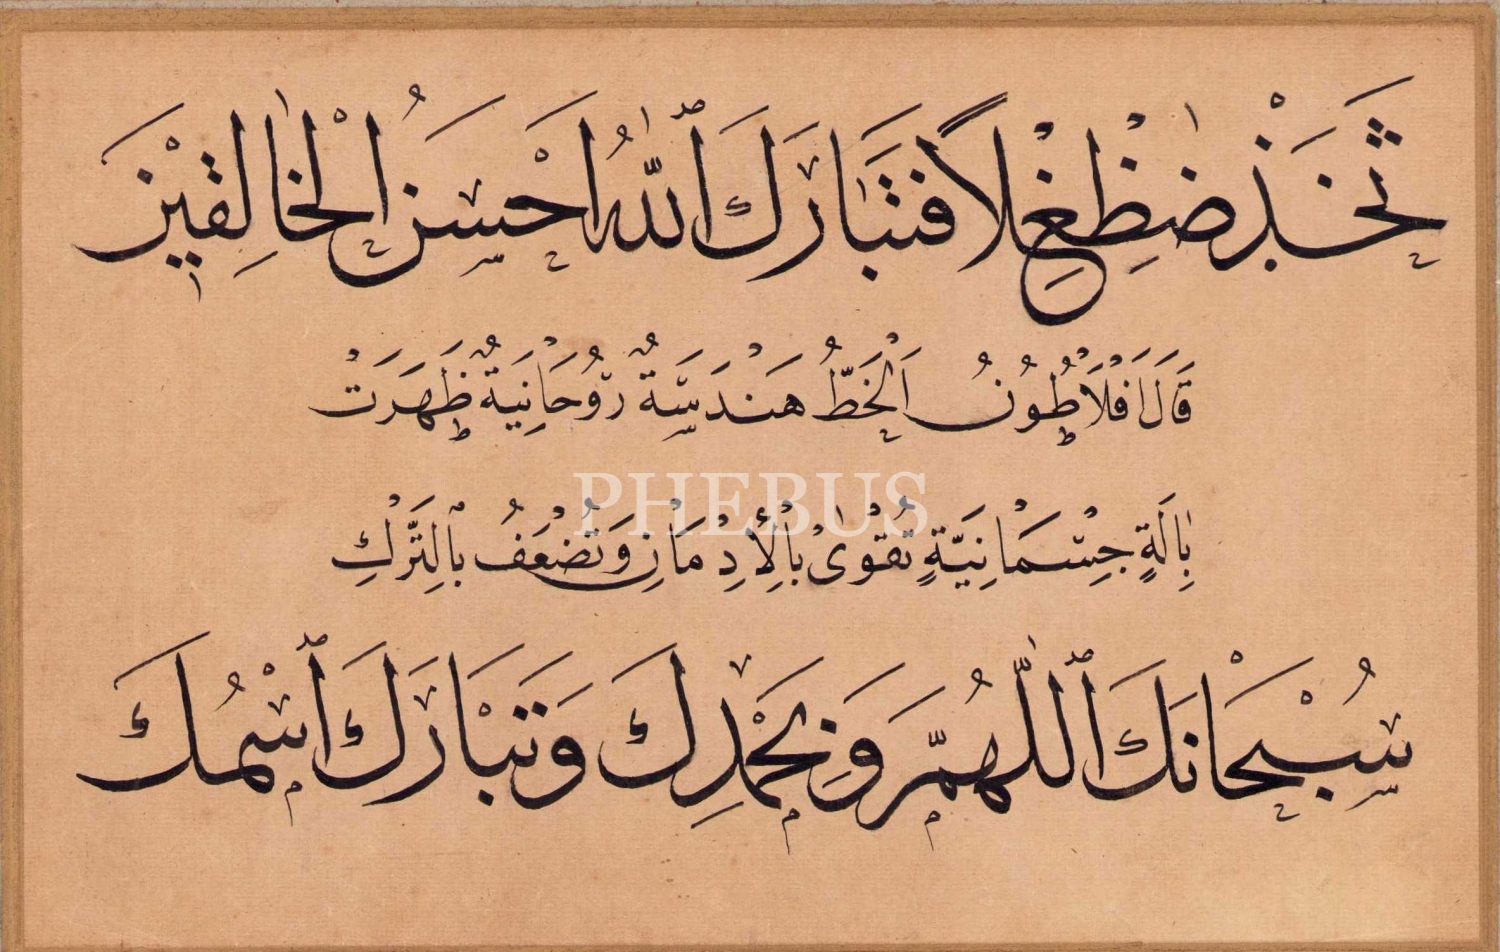 ثَخَذْ ضَظْغْلاً فَتَبَارَكَ ٱللّٰهُ اَحْسَنُ الْخَالِقِيْنَ
قَالَ اَفْلَاطُونُ اَلْخَطُّ هَنْدَسَةٌ رُوحَانِيَةٌ ظَهَرَتْ
PHEBUS
بِاٰلَةٍ جِسْمَانِيَّةٍ تُقْوٰى بْاْلِأدِمَانِ وَتُضْعَفُ بْالِتَّرْكِ
سُبْحَانَكَ ٱللّٰهُمَّ وَبِحَمْدِكَ وَتَبَارَكَ ٱسْمُكَ